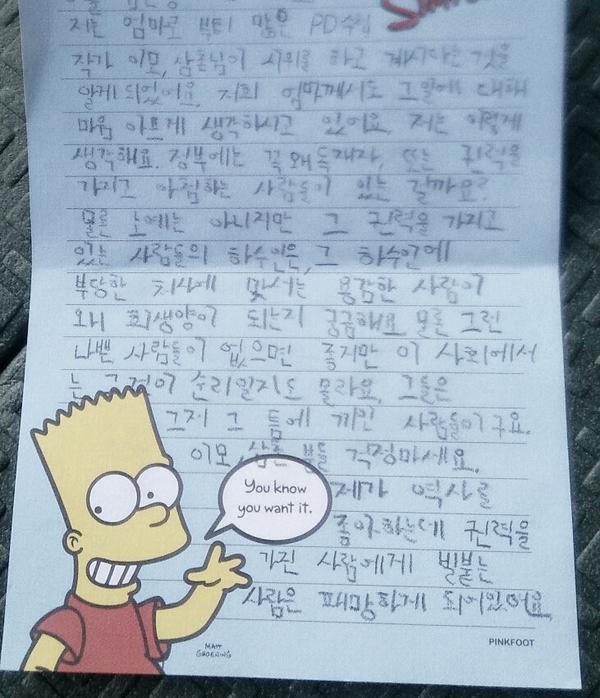 저는 엄마로 부터 많은 PD수첩
작가 이모, 삼촌님이 시위를 하고 계시다는 것을
알게되었어요. 저희 엄마께서도 그 일에 대해
마음 아프게 생각하시고 있어요. 저는 이렇게
생각해요. 정부에는 꼭 왜 독재자, 또는 권력을
가지고 아첨하는 사람들이 있는 걸까요?
물론 노예는 아니지만 그 권력을 가지고
있는 사람들의 하수인은, 그 하수인에
부당한 처사에 맞서는 용감한 사람이
왜 희생양이 되는지 궁금해요. 물론 그런
나쁜 사람들이 없으면 좋지만 이 사회에서
는 그것이 순리일지도 몰라요. 그들은
그저 그 틈에 끼인 사람들이구요.
이모, 삼촌 분들 걱정마세요.
You know
you want it.
제가 역사를
좋아하는데 권력을
가진 사람에게 빌붙는
사람은 패망하게 되어있어요.
MATT
GROENING
PINKFOOT